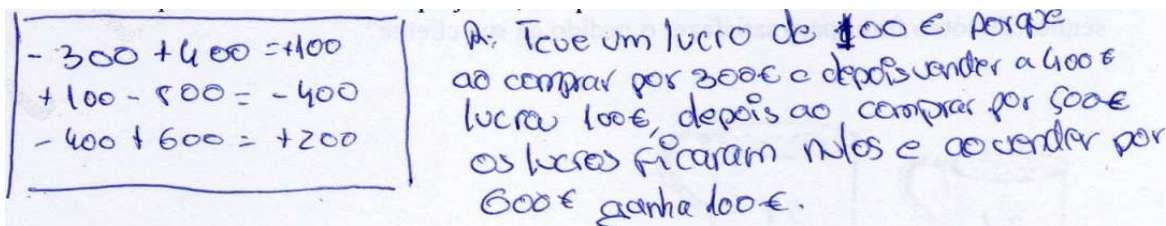 - 300 + 400 = +100
+ 100 - 500 = - 400
- 400 + 600 = +200
R: Teve um lucro do 100 € porque
ao comprar por 300€ e depois vender a 400€
lucrou 100€, depois ao comprar por 500€
os lucros ficaram nulos e ao vender por
600€ ganha 100€.